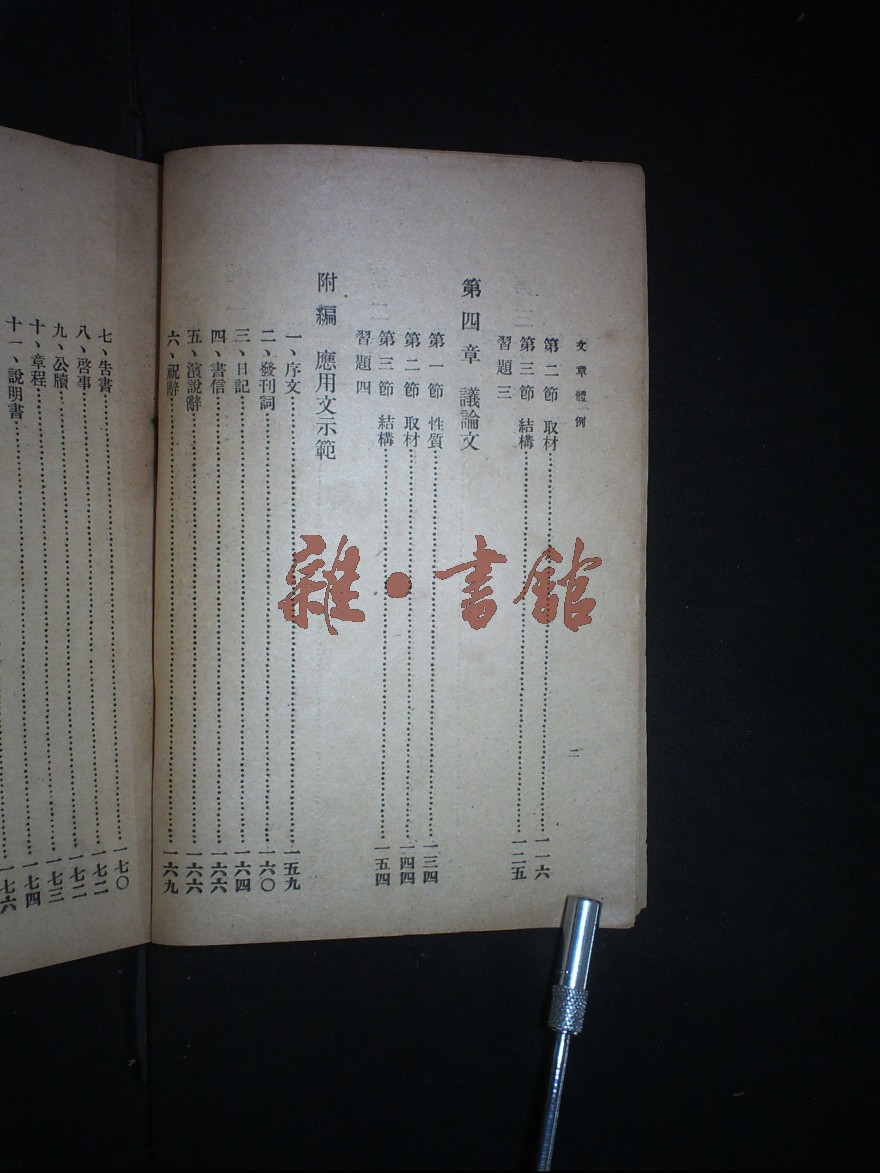 文章體例
二
第二節 取材…………一一六
第三節 結構…………一二五
習題三
第四章 議論文
第一節 性質…………一三四
第二節 取材…………一四四
第三節 結構…………一五四
習題四
附編 應用文示範
一、序文…………一五九
二、發刊詞…………一六〇
三、日記…………一六四
四、書信…………一六六
五、演說辭…………一六六
六、祝辭…………一六九
七、告書…………一七〇
八、啓事…………一七二
九、公牘…………一七二
十、章程…………一七三
十一、說明書…………一七四
一七六
雜·書館